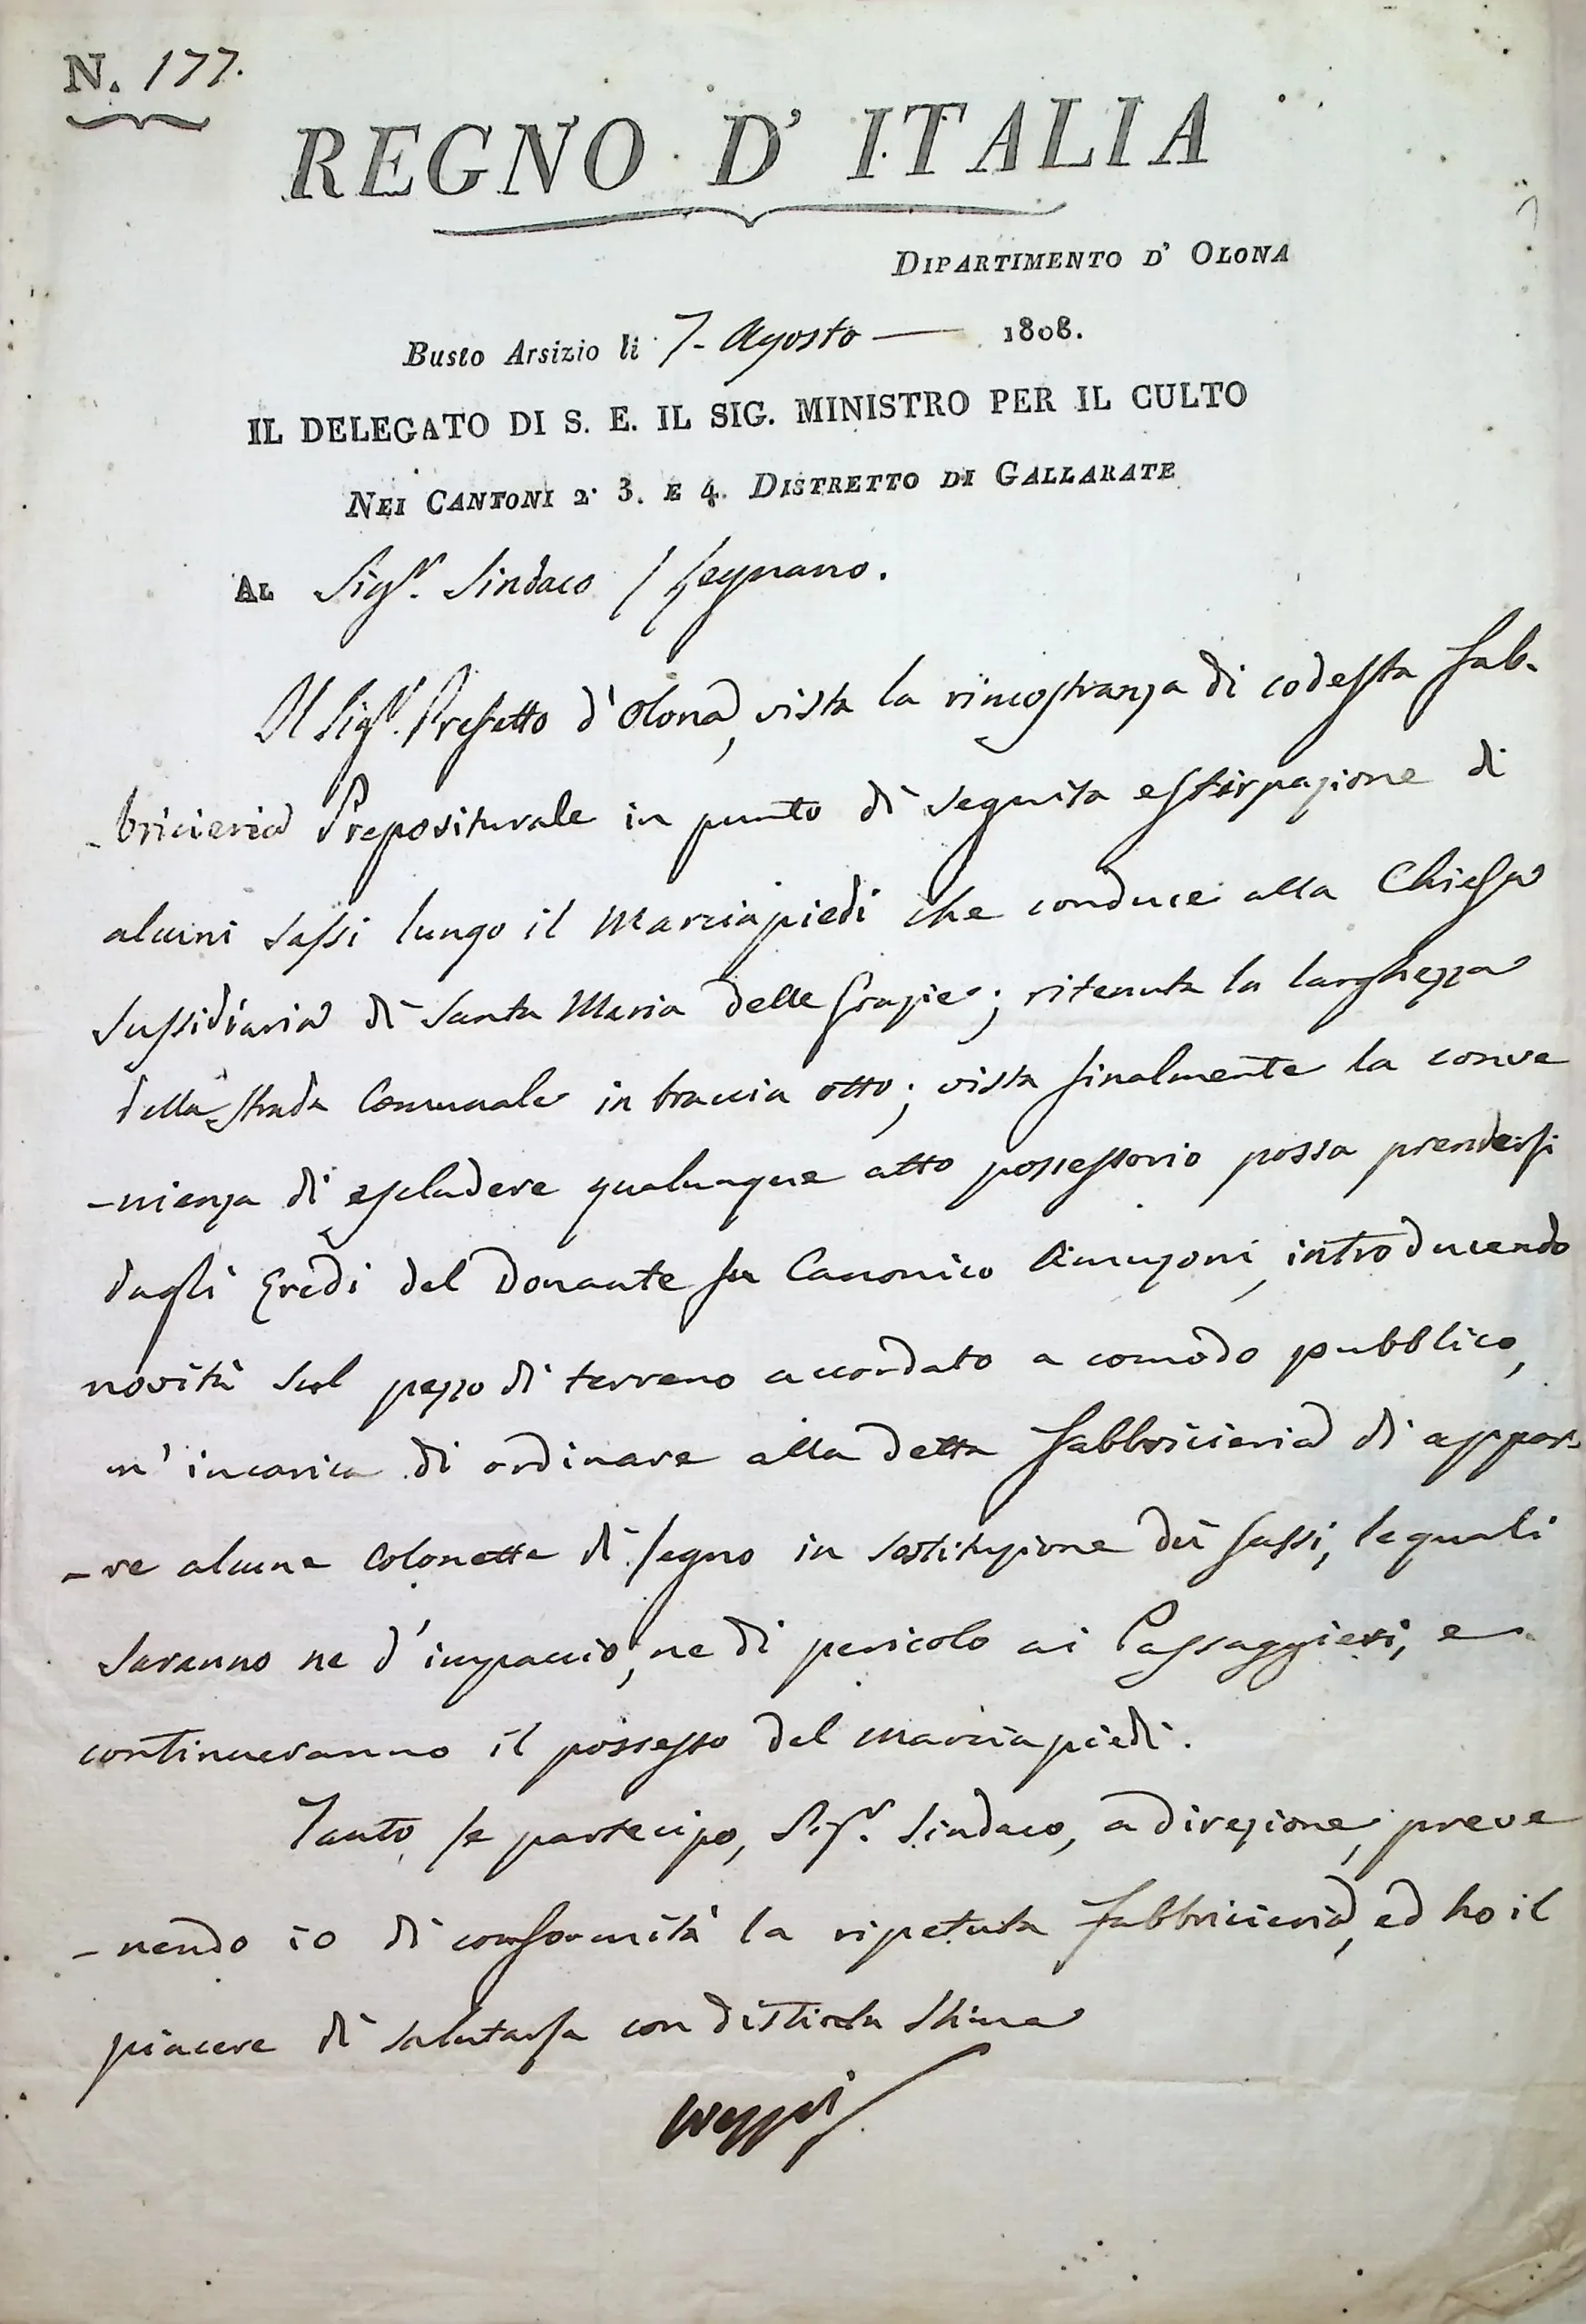 N. 177.
REGNO D' ITALIA
DIPARTIMENTO D' OLONA
Busto Arsizio li 7. Agosto — 1808.
IL DELEGATO DI S. E. IL SIG. MINISTRO PER IL CULTO
NEI CANTONI 2. 3. E 4. DISTRETTO DI GALLARATE
AL Sigr. Sindaco / Legnano.
Il Sigr. Prefetto d'Olona, vista la rimostranza di codesta Fab-
-bricieria Prepositurale in punto di seguita estirpazione di
alcuni sassi lungo il marciapiedi che conduce alla Chiesa
sussidiaria di Santa Maria delle Grazie; ritenuta la larghezza
della strada Comunale in braccia otto; vista finalmente la conve
-nienza di escludere qualunque atto possessorio possa prendersi
dagli Eredi del Donante fu Canonico, introducendo
novità sul pezzo di terreno accordato a comodo pubblico,
m'incarica di ordinare alla detta Fabbricieria di appor-
-re alcune Colonette di legno in sostituzione dei sassi, le quali
saranno ne d'impaccio, ne di pericolo ai Passaggieri, e
continueranno il possesso del marciapiedi.
Tanto le partecipo, Sigr. Sindaco, a direzione, preve
-nendo io di conformità la ripetuta Fabbricieria, ed ho il
piacere di salutarla con distinta stima